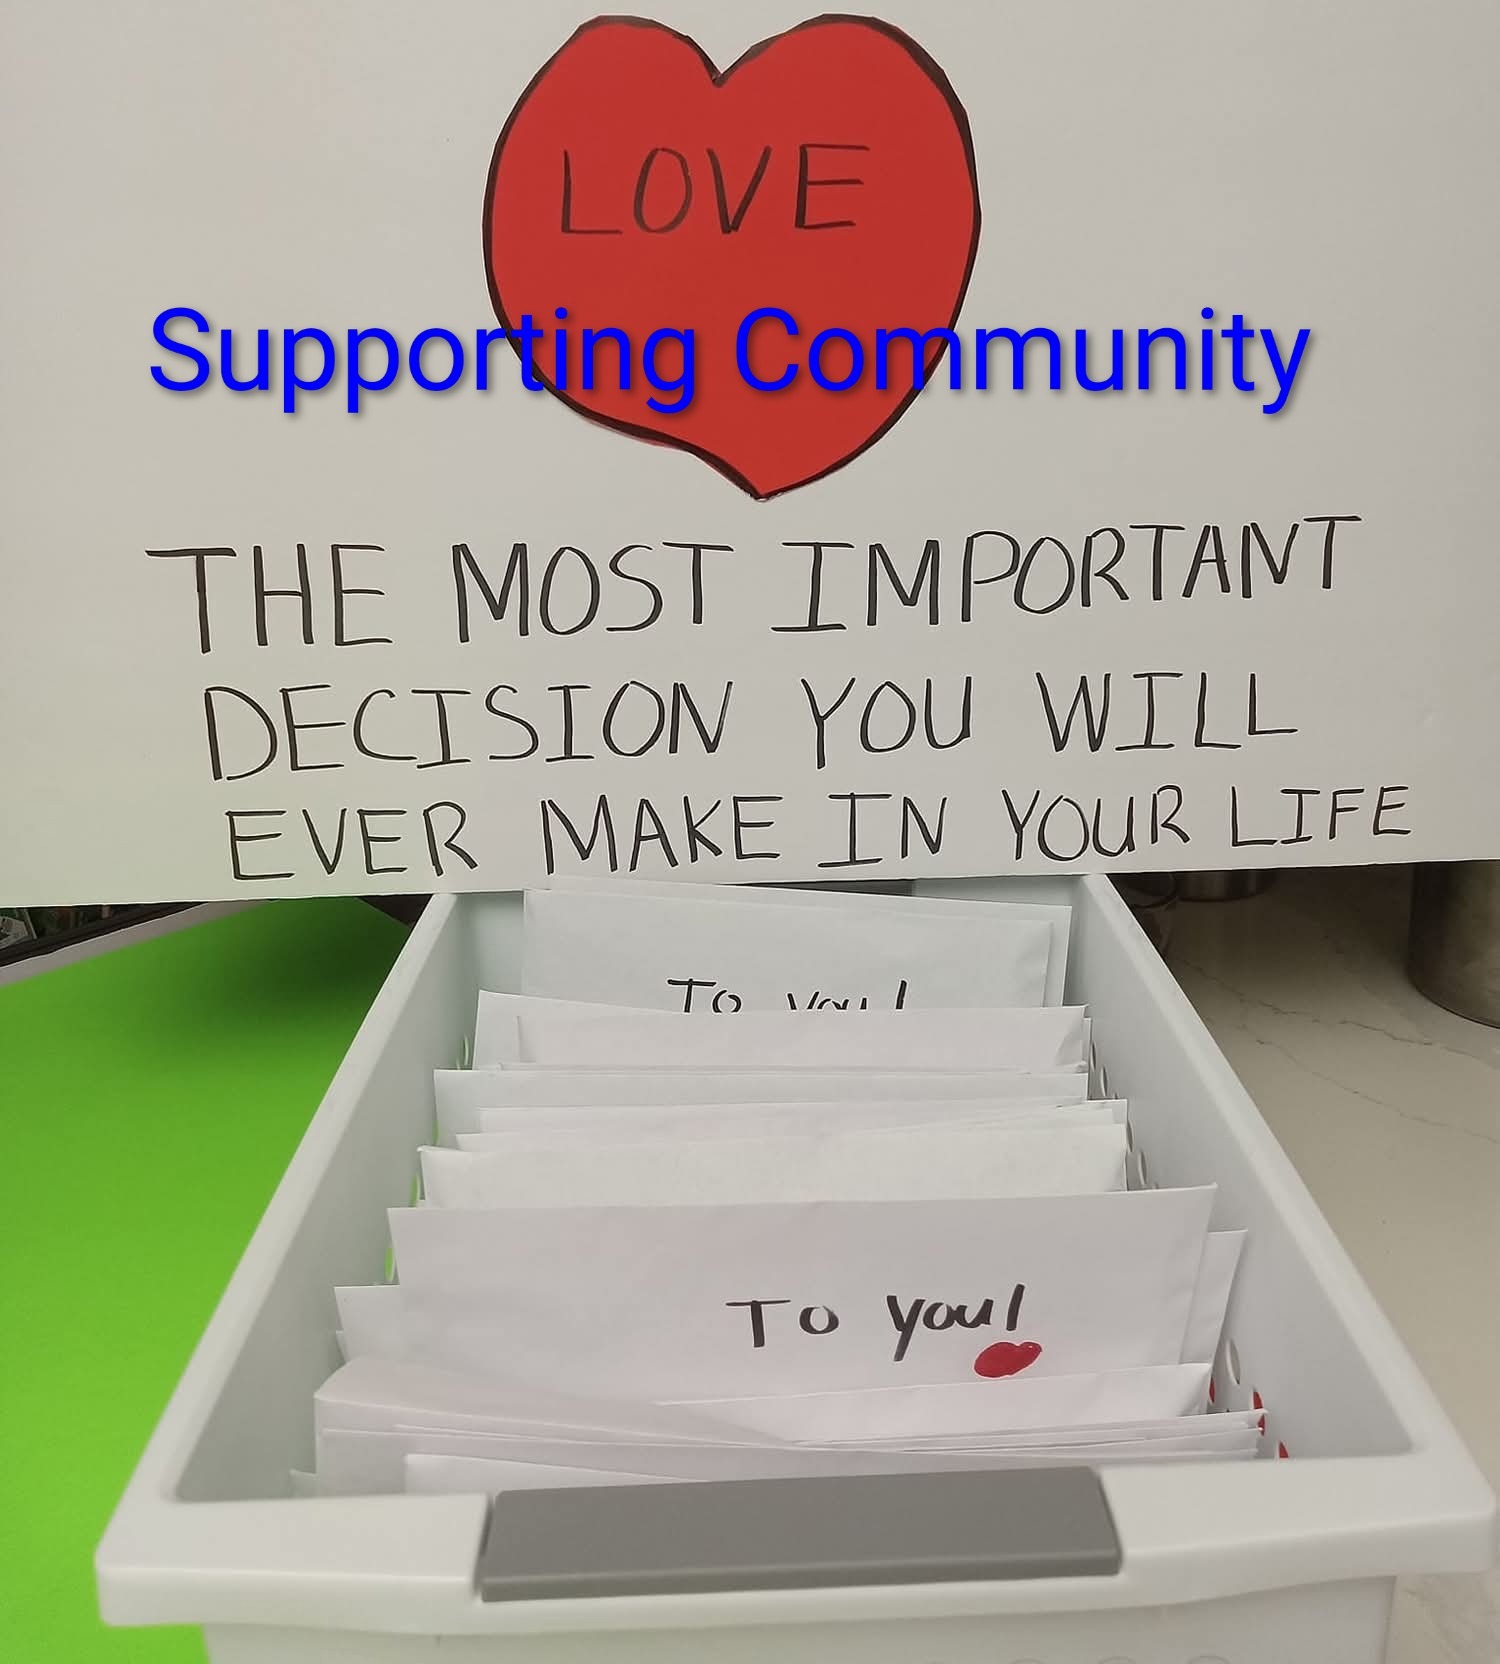 LOVE
Supporting Community
THE MOST IMPORTANT
DECISION YOU WILL
EVER MAKE IN YOUR LIFE
To you!
To you!